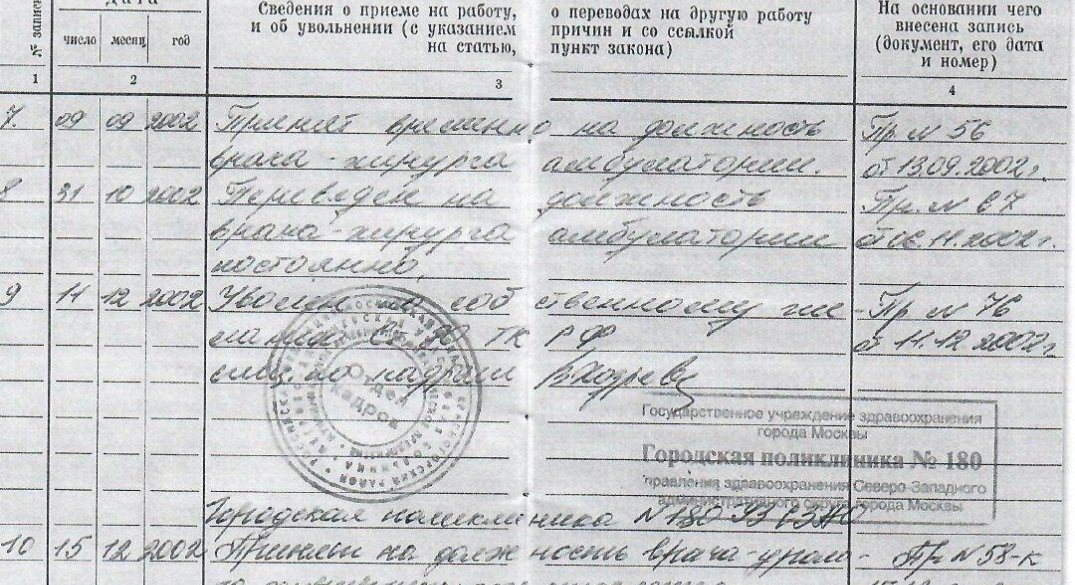 № записи
Дата
Сведения о приеме на работу, о переводах на другую работу
и об увольнении (с указанием причин и со ссылкой
на статью, пункт закона)
На основании чего
внесена запись
(документ, его дата
и номер)
число месяц год
1 2 3 4
7. 09 09 2002 Принят временно на должность Пр. № 56
врача-хирурга амбулатории. от 13.09.2002г.
8 31 10 2002 Переведен на должность Пр. № 67
врача-хирурга амбулатории от 06.11.2002г.
постоянно.
9 11 12 2002 Уволен по собственному же- Пр. № 76
ТК РФ от 11.12.2002г.
спец. по кадрам
Отдел
кадров
Государственное учреждение здравоохранения
города Москвы
Городская поликлиника № 180
правления здравоохранения Северо-Западного
административного округа города Москвы
Городская поликлиника №180
10 15 12 2002 на должность врача-уроло- Пр № 58-к